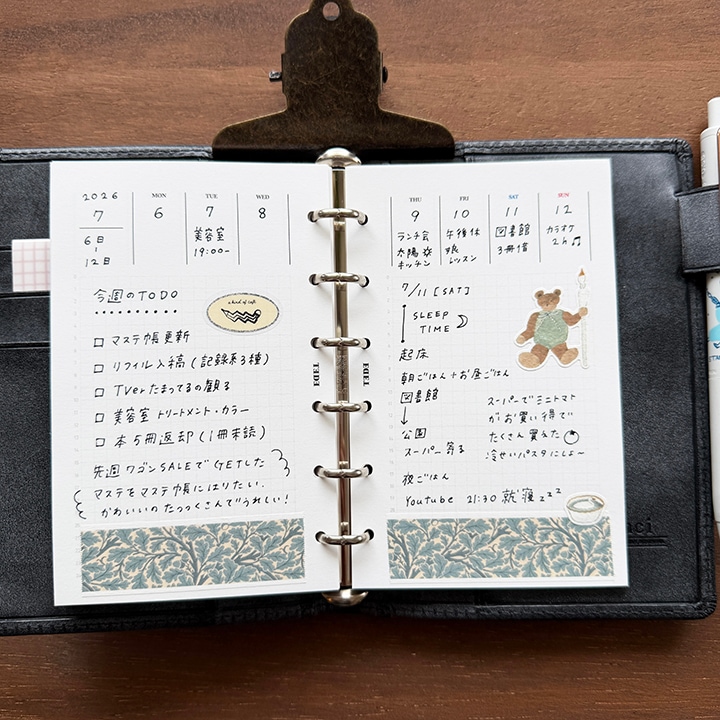 2026
7
6日
~
12日
MON
6
TUE
7
美容室
19:00-
WED
8
今週のTODO
a kind of cafe
□ マステ帳更新
□ リフィル入稿(記録系3種)
□ TVerたまってるの観る
□ 美容室 トリートメント・カラー
□ 本5冊返却(1冊未読)
先週ワゴンSALEでGETした
マステをマステ帳にはりたい.
かわいいのたっっくさんでうれしい!
THU
9
ランチ会
太陽
キッチン
FRI
10
午後休
娘
レッスン
SAT
11
図書館
3冊借
SUN
12
カラオケ
2h♫
7/11 [SAT]
SLEEP
TIME
起床
朝ごはん+お昼ごはん
図書館
↓
公園
スーパー寄る
夜ごはん
Youtube 21:30 就寝zzz
スーパーでミニトマト
がお買い得で
たくさん買えた
冷せいパスタにしよ~